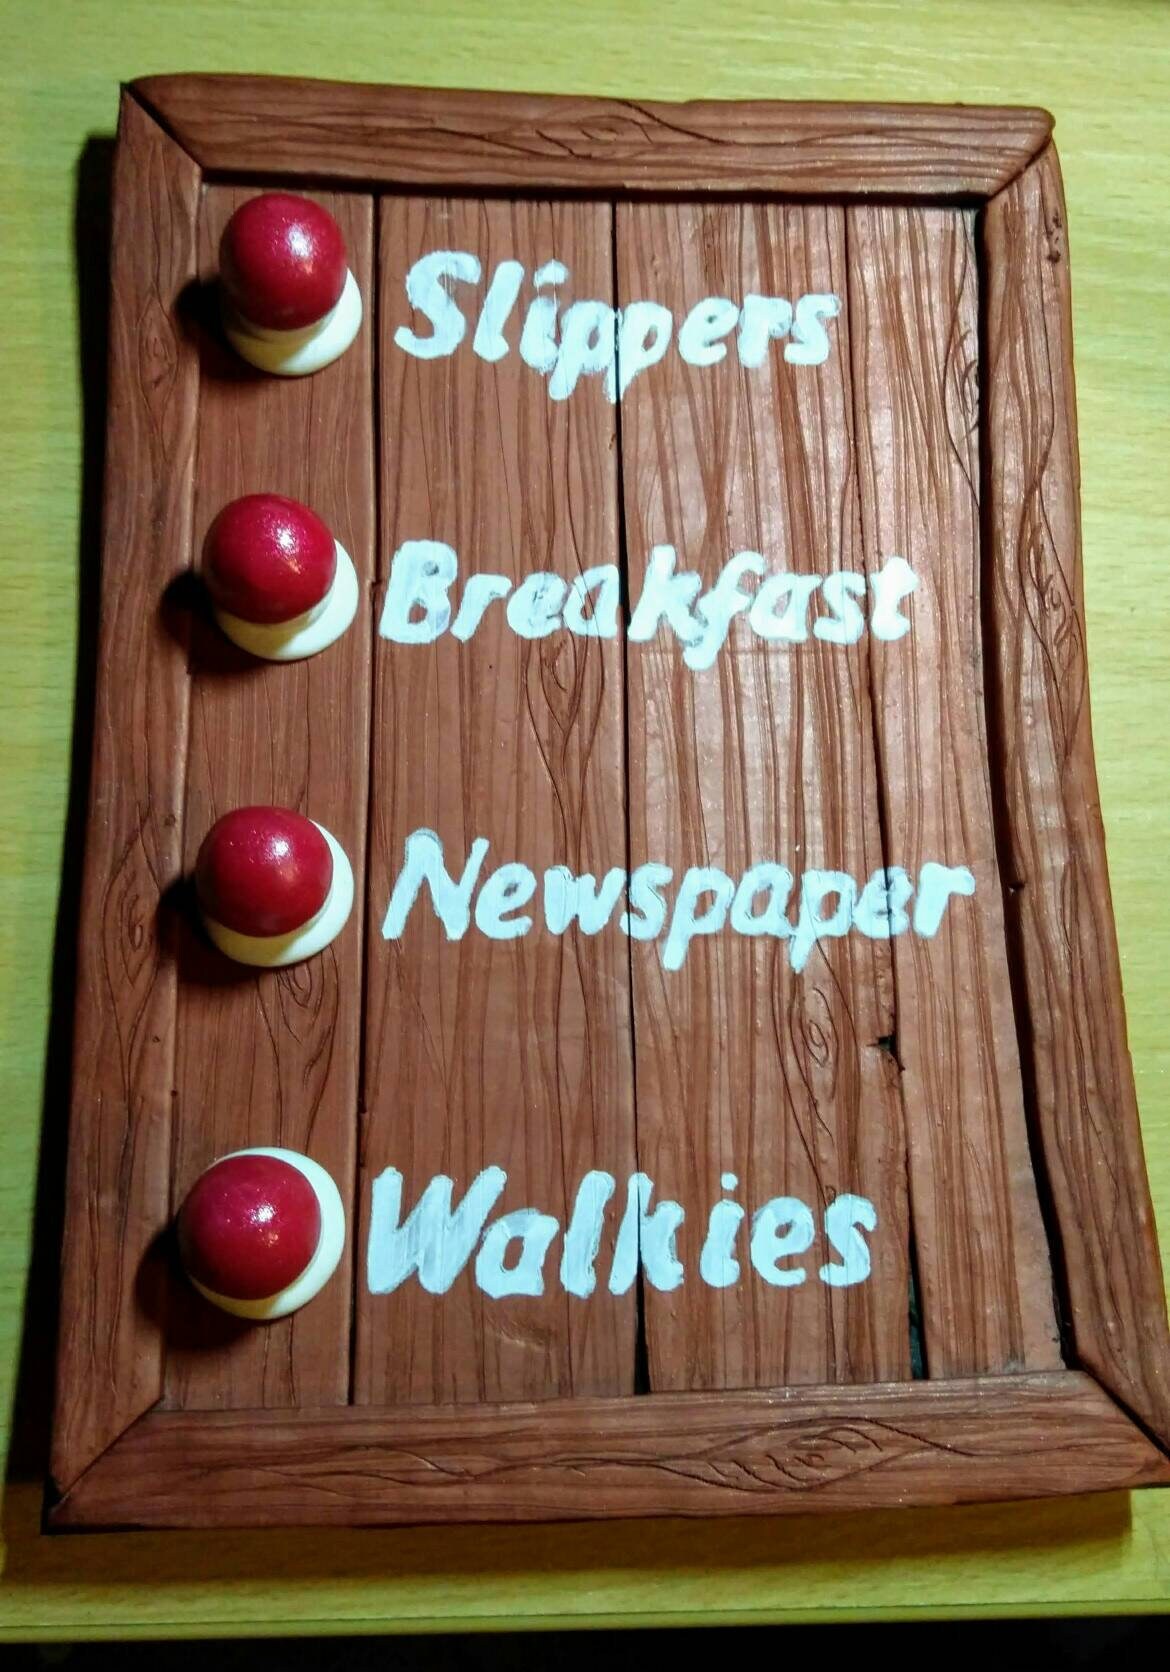 Slippers
Breakfast
Newspaper
Walkies